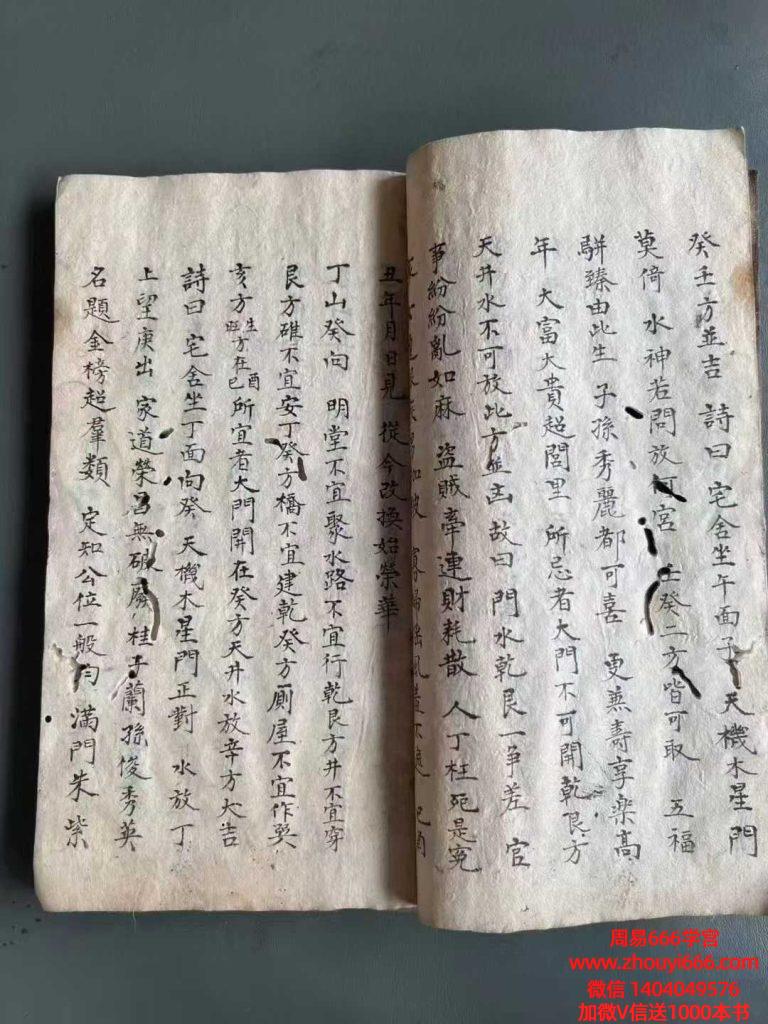 癸壬方並吉 詩曰 宅舍坐午面子 天機木星門
莫倚 水神若問放何宮 壬癸二方皆可取 五福
駢臻由此生 子孫秀麗都可喜 更兼壽享樂高
年 大富大貴超閭里 所忌者大門不可開乾艮方
天井水不可放此方並凶 故曰 門水乾艮一爭差 官
事紛紛亂如麻 盜賊牽連財耗散 人丁枉死是冤
寡婦 風 不 巳酉
丑年月日見 從今改換始榮華
丁山癸向 明堂不宜聚水路不宜行乾艮方井不宜穿
艮方碓不宜安丁癸方橋不宜建乾癸方廁屋不宜作巽
亥方生旺方在酉巳所宜者大門開在癸方天井水放辛方大吉
詩曰 宅舍坐丁面向癸 天機木星門正對 水放丁
上望庚出 家道榮昌無破廢 桂子蘭孫俊秀英
名題金榜超羣類 定知公位一般均 滿門朱紫
周易666学宫
www.zhouyi666.com
微信 1404049576
加微V信送1000本书